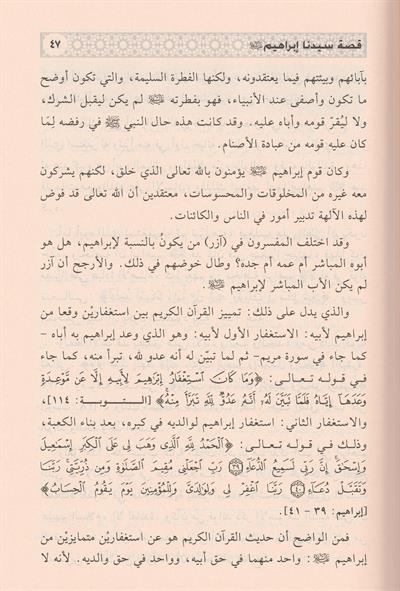 قصة سيدنا إبراهيم ﷺ ٤٧
بآبائهم وبيئتهم فيما يعتقدونه، ولكنها الفطرة السليمة، والتي تكون أوضح
ما تكون وأصفى عند الأنبياء، فهو بفطرته ﷺ لم يكن ليقبل الشرك،
ولا ليُقرّ قومه وأباه عليه. وقد كانت هذه حال النبي ﷺ في رفضه لِمَا
كان عليه قومه من عبادة الأصنام.
وكان قوم إبراهيم ﷺ يؤمنون بالله تعالى الذي خلق، لكنهم يشركون
معه غيره من المخلوقات والمحسوسات، معتقدين أن الله تعالى قد فوض
لهذه الآلهة تدبير أمور في الناس والكائنات.
وقد اختلف المفسرون في (آزر) من يكونُ بالنسبة لإبراهيم، هل هو
أبوه المباشر أم عمه أم جده؟ وطال خوضهم في ذلك. والأرجح أن آزر
لم يكن الأب المباشر لإبراهيم ﷺ.
والذي يدل على ذلك: تمييز القرآن الكريم بين استغفاريْن وقعا من
إبراهيم لأبيه: الاستغفار الأول لأبيه: وهو الذي وعد إبراهيم به أباه -
كما جاء في سورة مريم- ثم لما تبيّن له أنه عدو لله، تبرأ منه، كما جاء
في قوله تعالى: ﴿وَمَا كَانَ ٱسْتِغْفَارُ إِبْرَٰهِيمَ لِأَبِيهِ إِلَّا عَن مَّوْعِدَةٍ
وَعَدَهَآ إِيَّاهُ فَلَمَّا تَبَيَّنَ لَهُۥٓ أَنَّهُۥ عَدُوٌّ لِّلَّهِ تَبَرَّأَ مِنْهُ﴾ [التوبة: ١١٤].
والاستغفار الثاني: استغفار إبراهيم لوالديه في كبره، بعد بناء الكعبة،
وذلك في قوله تعالى: ﴿ٱلْحَمْدُ لِلَّهِ ٱلَّذِى وَهَبَ لِى عَلَى ٱلْكِبَرِ إِسْمَٰعِيلَ
وَإِسْحَٰقَ إِنَّ رَبِّى لَسَمِيعُ ٱلدُّعَآءِ ٣٩ رَبِّ ٱجْعَلْنِى مُقِيمَ ٱلصَّلَوٰةِ وَمِن ذُرِّيَّتِى رَبَّنَا
وَتَقَبَّلْ دُعَآءِ ٤٠ رَبَّنَا ٱغْفِرْ لِى وَلِوَٰلِدَىَّ وَلِلْمُؤْمِنِينَ يَوْمَ يَقُومُ ٱلْحِسَابُ﴾
[إبراهيم: ٣٩ - ٤١].
فمن الواضح أن حديث القرآن الكريم هو عن استغفاريْن متمايزيْن من
إبراهيم ﷺ: واحد منهما في حق أبيه، وواحد في حق والديه. لأنه لا